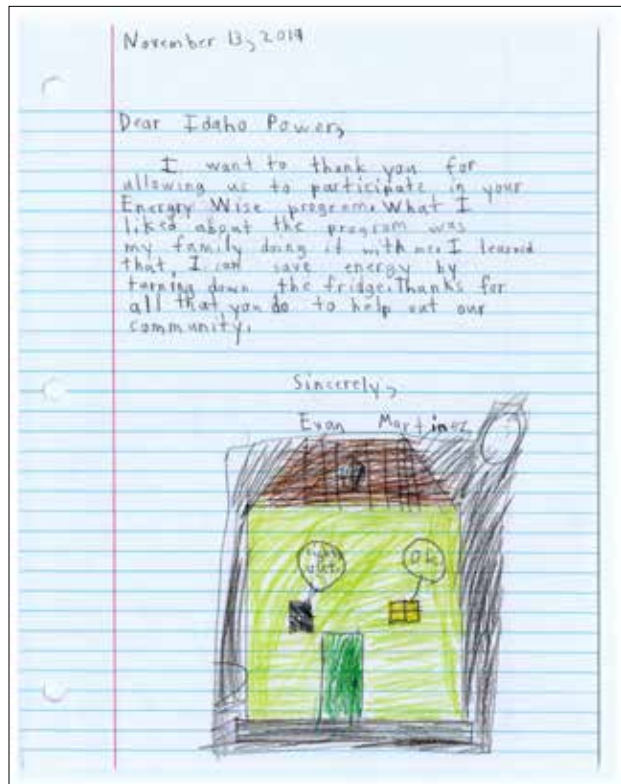 November 13, 2014
Dear Idaho Power,
I want to thank you for
allowing us to participate in your
Energry Wise program. What I
liked about the program was
my family doing it with me. I learned
that, I can save energy by
turning down the fridge. Thanks for
all that you do to help out our
community.
Sincerely,
Evan Martinez
lights
ok